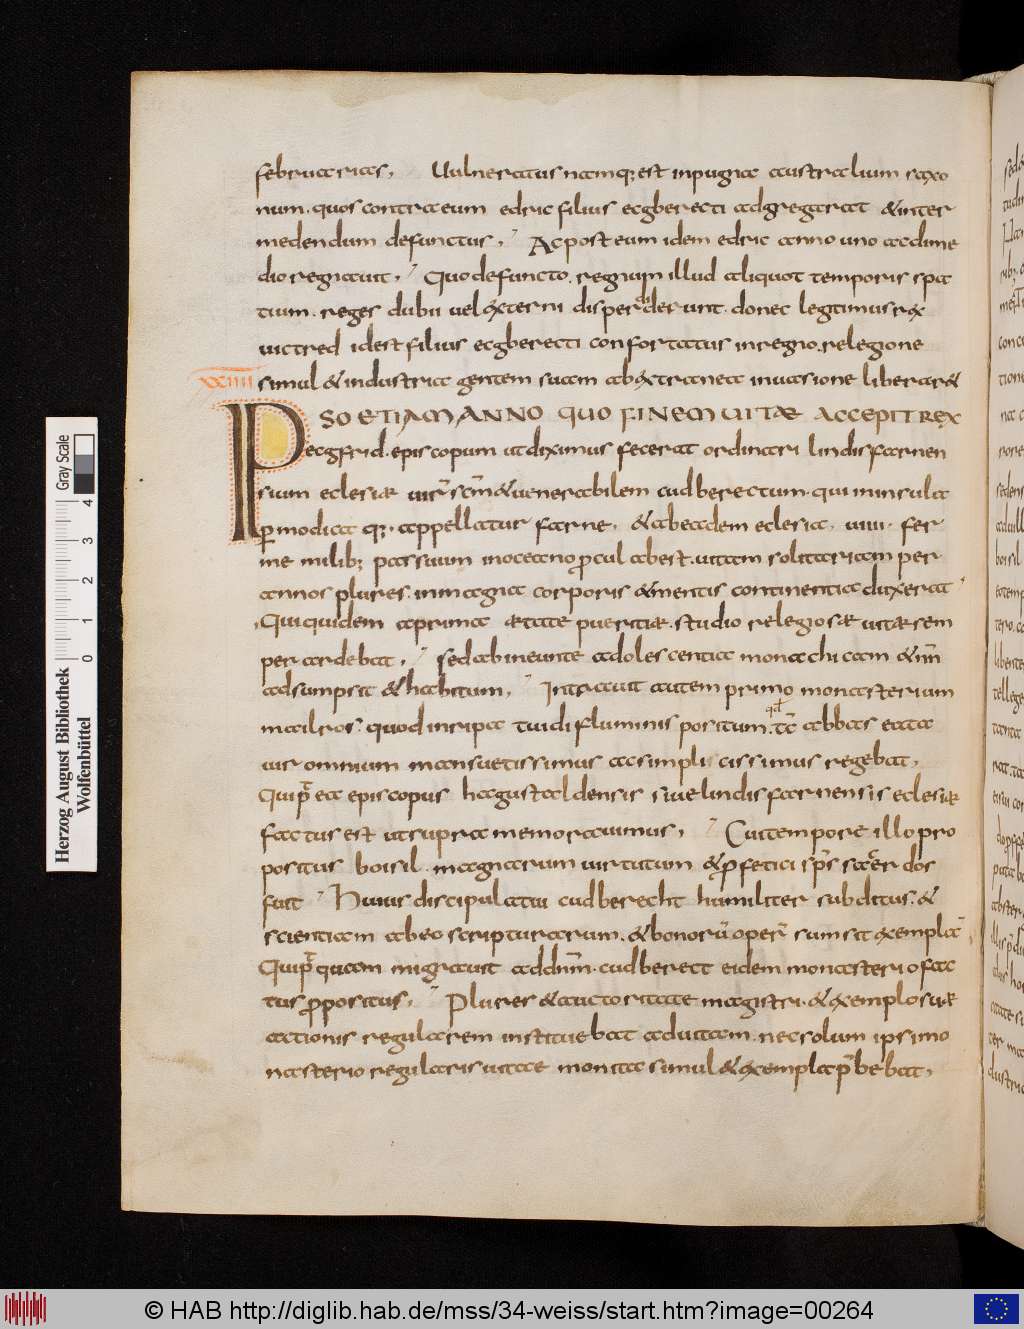 februarias, Uulneratus namq; est inpugna australium saxo
num. quos contra eum edric filius ecgberecti adgregarat &inter
medendum defunctus, Ac post eum idem edric anno uno ac dime
dio regnauit, Quo defuncto. regnum illud aliquot temporis spa
tium. reges dubii uel externi disperdiderunt. donec legitimus rex
uictred idest filius ecgberecti confortatus inregno. relegione
XXVIII simul & industria gentem suam ab extranea inuasione liberar&
PSO ETIAM ANNO QUO FINEM UITAE ACCEPIT REX
ecgfrid. episcopum ut diximus fecerat ordinari lindisfarnen
sium eclesiæ uirū scm̄ & uenerabilem cudberectum. qui ininsula
p̄modica q;. appellatur farne. & abeadem eclesia. uiiii. fer
me milib; passuum inoceano procul abest. uitam solitariam per
annos plures. inmagna corporis &mentis continentia duxerat
Qui quidem aprima ætate pueritiæ. studio relegiosæ uitæ sem
per ardebat, sed abineunte adolescentia monachicam & nm̄
adsumpsit & habitum, Intrauit autem primo monasterium
mailros. quod inripa tuidi fluminis positum. qd tc̄ abbas eata
uir omnium mansuetissimus ac simplicissimus regebat,
Qui p̄ ea episcopus hagustaldensis siue lindisfarnensis eclesiæ
factus est ut supra memorauimus, Cui tempore illo pro
positus boisil. magnarum uirtutum & profetici sp̄s sacer dos
fuit Huius discipulatui cudberecht humiliter subditus. &
scientiam abeo scripturarum. & bonorū operū sumsit exempla
Qui p̄quam migrauit addn̄m. cudberect eidem monasterio fac
tus propositus, Plures & auctoritate magistri. & exemplo suæ
actionis regularem instituebat aduitam. nec solum ipsi mo
nasterio regularis uitae monita simul & exempla p̄bebat,
Herzog August Bibliothek
Wolfenbüttel
Gray Scale
0 1 2 3 4
© HAB http://diglib.hab.de/mss/34-weiss/start.htm?image=00264